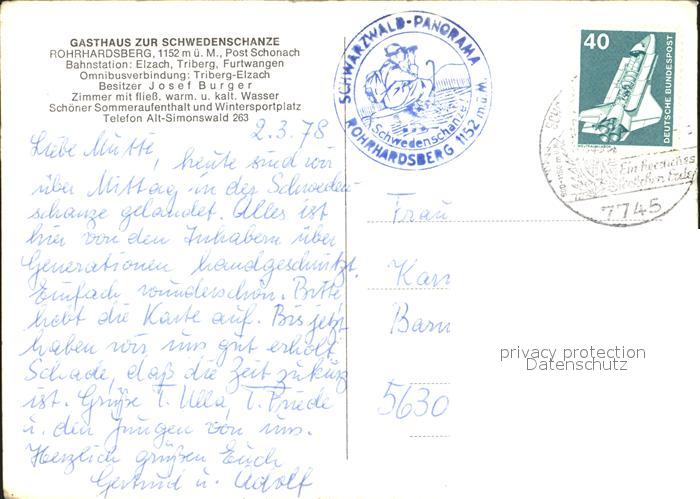 GASTHAUS ZUR SCHWEDENSCHANZE
ROHRHARDSBERG, 1152 m ü. M., Post Schonach
Bahnstation: Elzach, Triberg, Furtwangen
Omnibusverbindung: Triberg-Elzach
Besitzer Josef Burger
Zimmer mit fließ. warm. u. kalt. Wasser
Schöner Sommeraufenthalt und Wintersportplatz
Telefon Alt-Simonswald 263
2.3.78
Liebe Mutti,
heute sind wir
über Mittag in der Schweden-
schanze gelandet. Alles ist
hier von den Inhabern über
Generationen handgeschnitzt.
Einfach wunderschön. Bitte
hebt die Karte auf. Bis jetzt
haben wir uns gut erholt.
Schade, daß die Zeit zu kurz
ist. Grüße T. Ulla, T. Friede
u. den Jungen von uns.
Herzlich grüßen Euch
Gertrud u. Adolf
SCHWARZWALD-PANORAMA
Schwedenschanze
ROHRHARDSBERG 1152 m ü M.
40
DEUTSCHE BUNDESPOST
7745
Frau
5630
privacy protection
Datenschutz